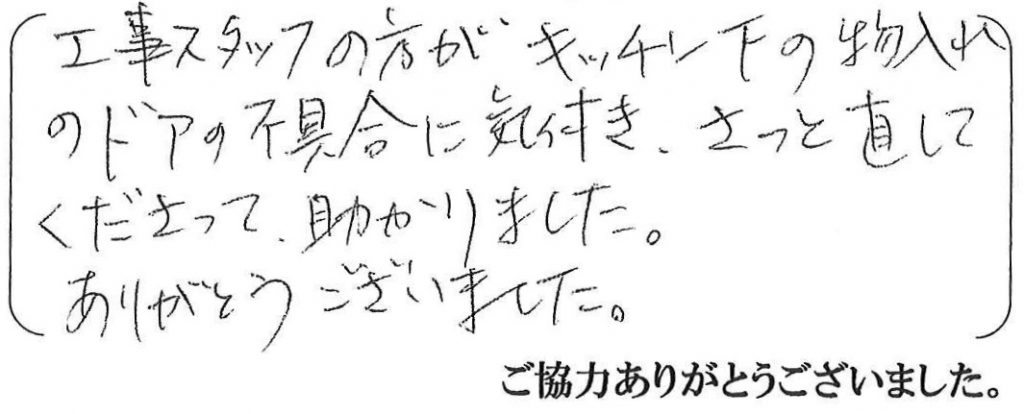 工事スタッフの方がキッチン下の物入れ
のドアの不具合に気付き、さっと直して
くださって、助かりました。
ありがとうございました。
ご協力ありがとうございました。